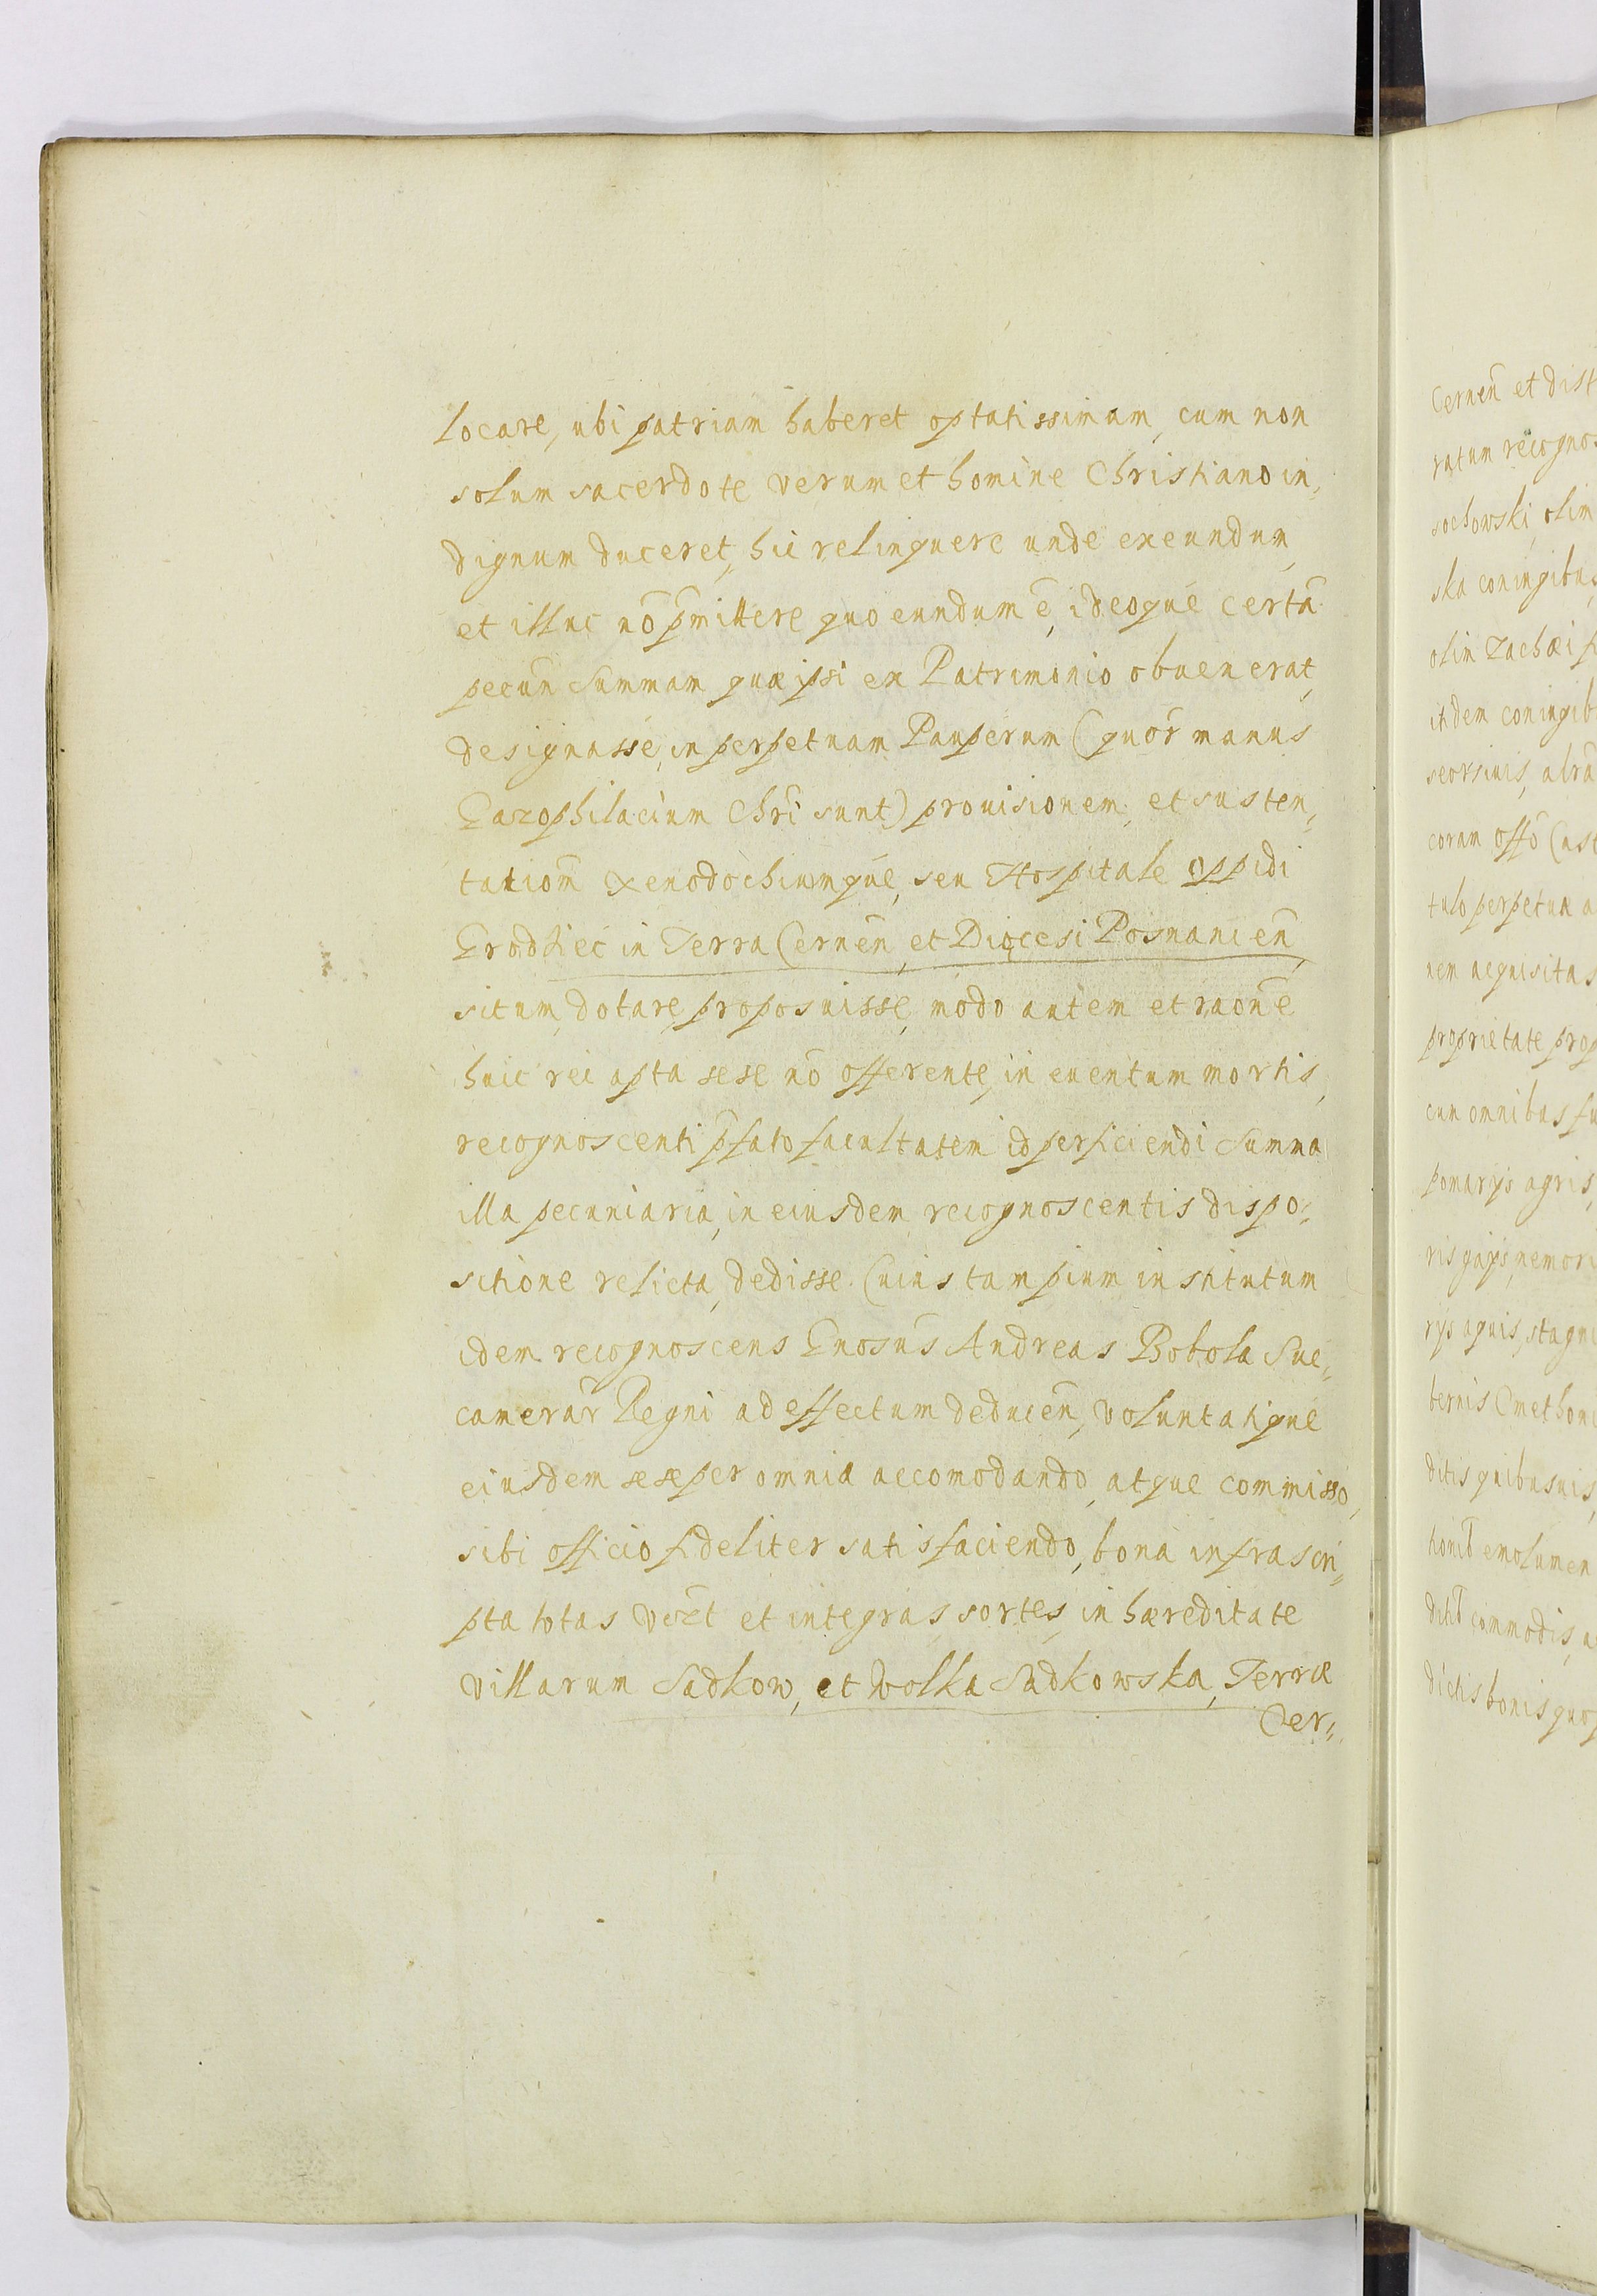 locare, ubi patriam haberet optatissimam, cum non
solum sacerdote verum et homine Christiano in„
dignum duceret, hic relinquere unde exeundum,
et illuc nõ p̃mittere quo eundum ẽ, ideoque certã
pecuñ Summam quæ ipsi ex Patrimonio obuenerat,
designasse, in perpetuam Pauperum (quor̃ manus
Gazophilacium Chrĩ sunt) prouisionem, et susten„
tatiom̃ Xenodochiumque, seu Hospitale oppidi
Grodziec in Terra Cerneñ, et Diœcesi Posnanieñ
situm, dotare, proposuisse, modo autem et raone̅
huic rei apta sese nõ offerente, in euentum mortis,
recognoscenti p̃fato facultatem id perficiendi Summa
illa pecuniaria, in eiusdem recognoscentis dispo„
sitione relicta, dedisse. Cuius tam pium institutum
idem recognoscens Gnosus̃ Andreas Bobola Suc„
camerar̃ Regni ad effectum deduceñ, voluntatique
eiusdem sese per omnia accomodando, atque commisso,
sibi officio fideliter satisfaciendo, bona infrascri„
pta totas vcz̃t et integras sortes, in hæreditate
villarum Sadkow, et Wolka Sadkowska, Terræ
Cer„
Cerneñ et dist
ratum recognos
sochowski, olim
ska coniugibus
olim Zachæi
itdem coniugib
seorsiuis,
coram offõ
tulo perpetuæ
nem acquisitas
proprietate prop
cum omnibus fu
pomarijs agris,
ris gajis, nemori
rijs aquis, stagni
bernis Cmethoni
ditis quibusuis,
emolumen
commodis,
dictis bonis quo